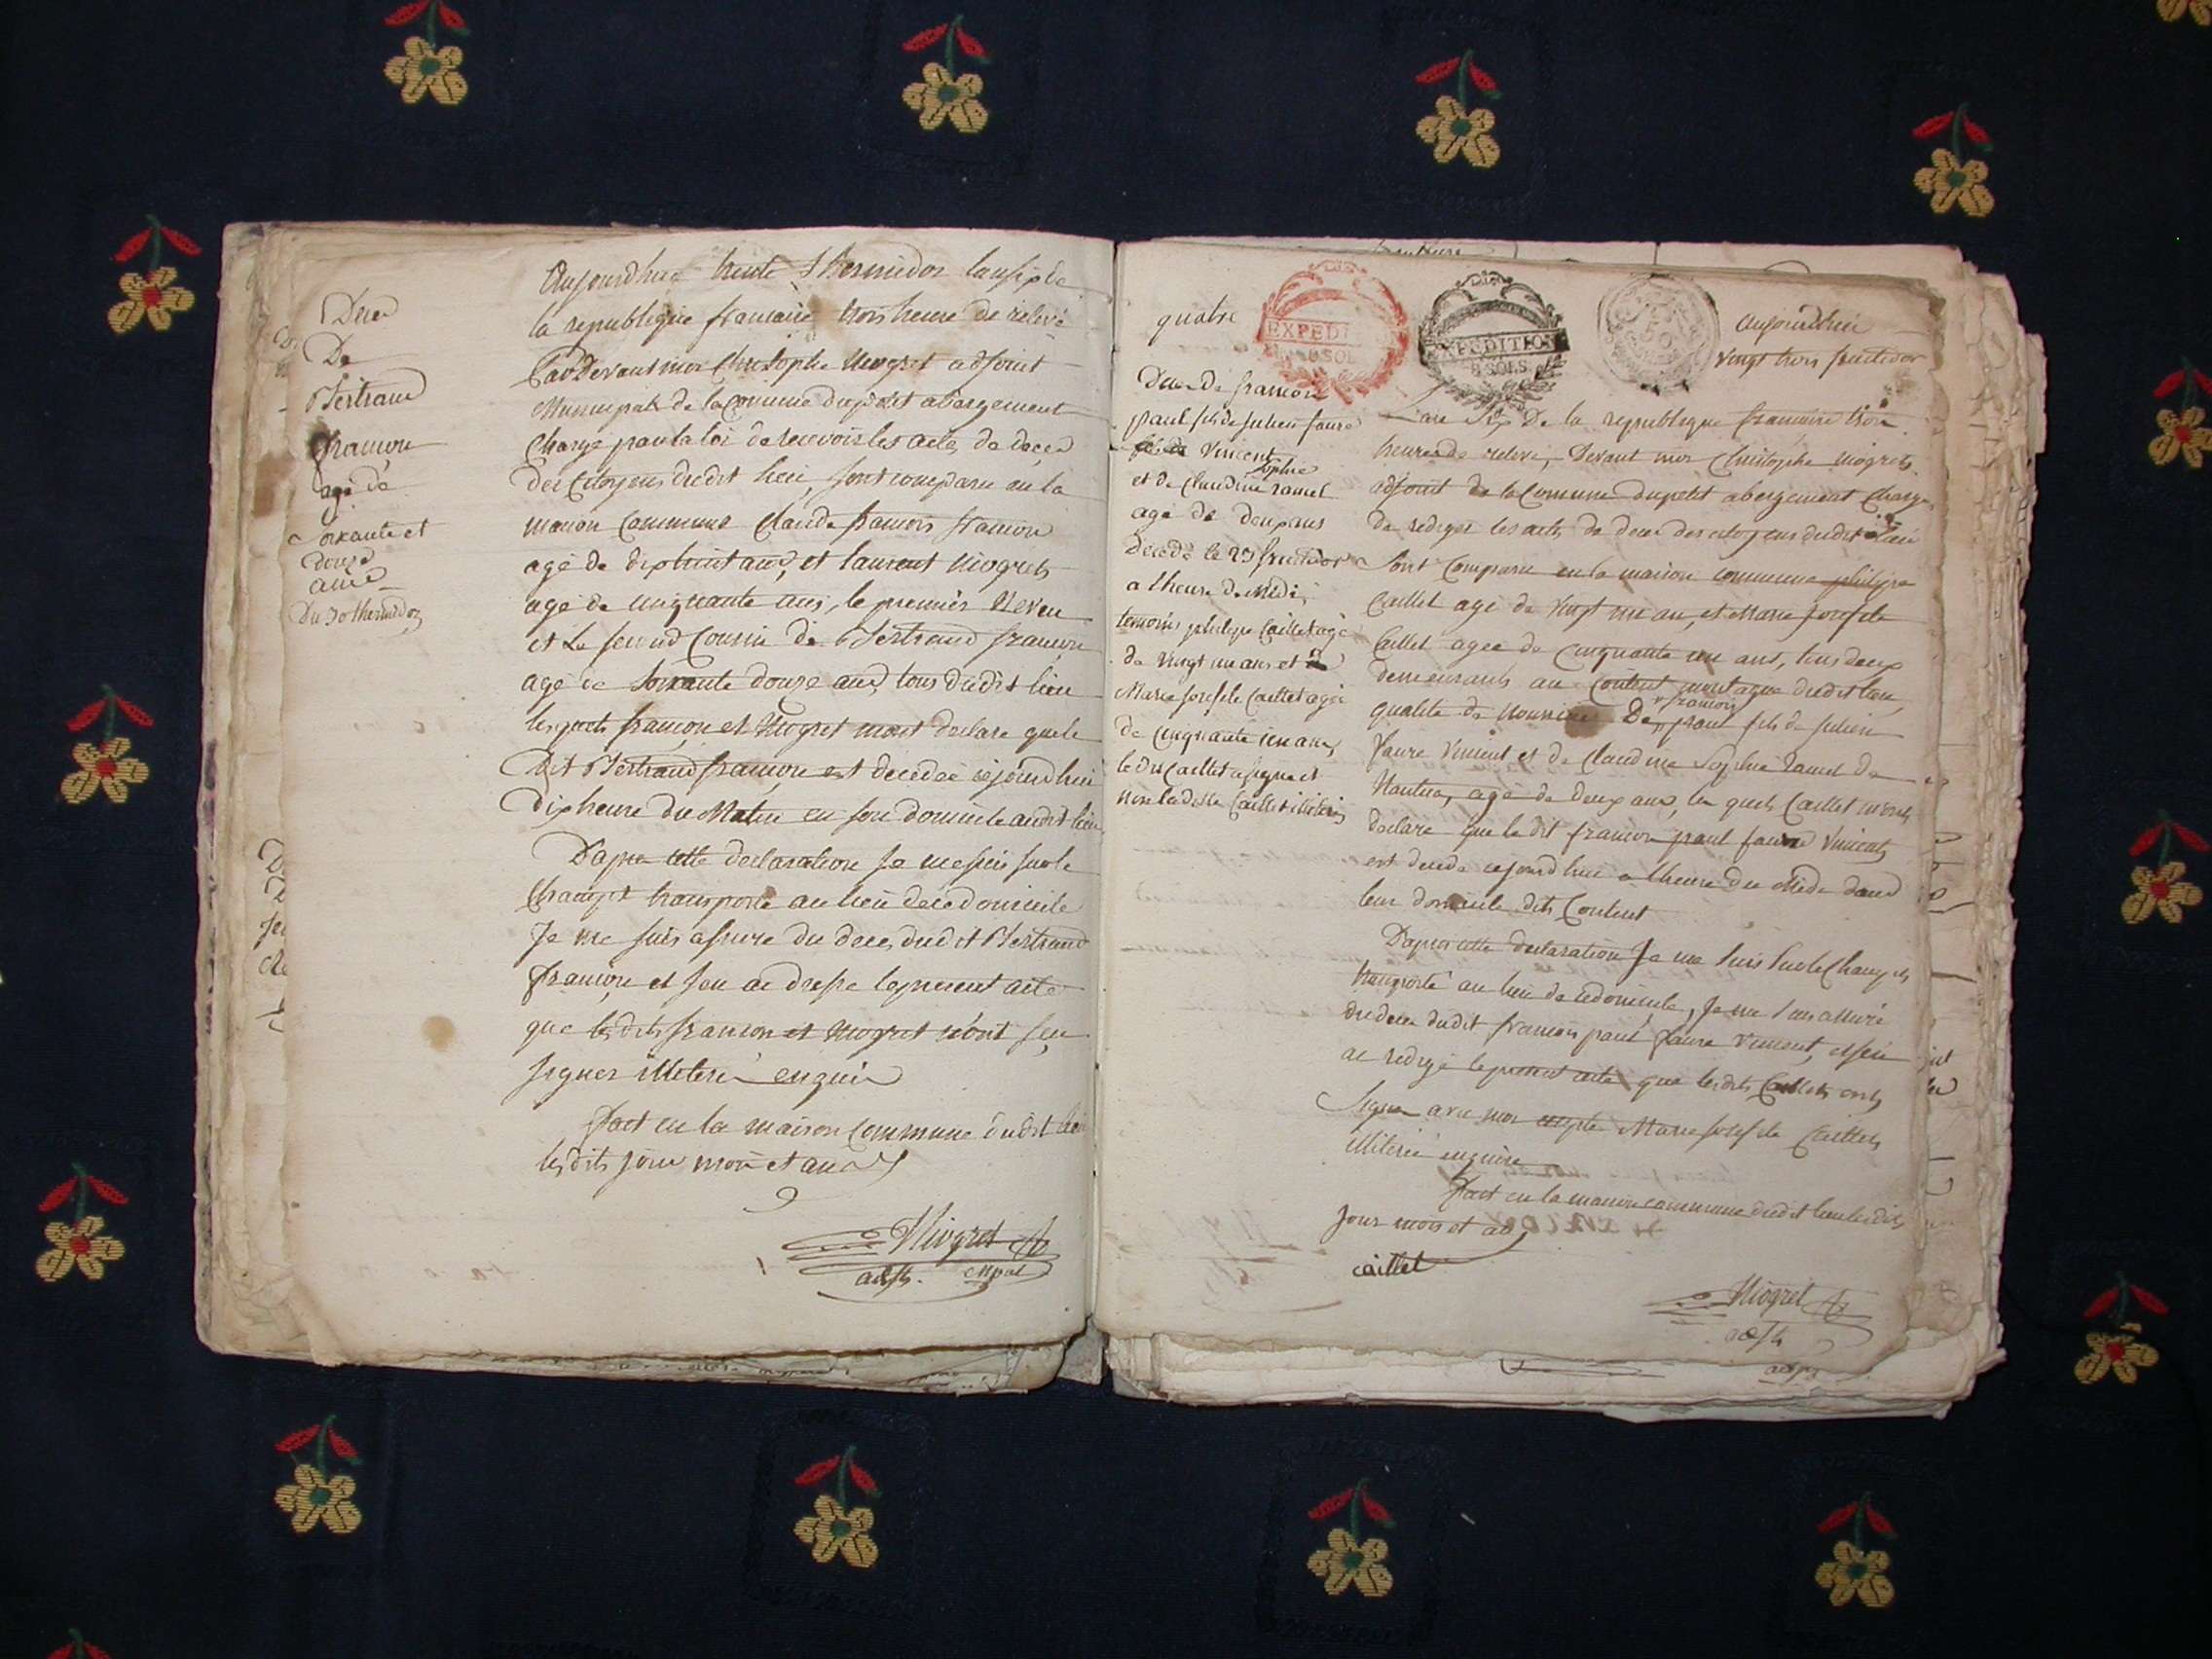 Deces
De
Bertrand
francon
agé de
soixante et
douze
ans
Du 30 thermidor
Aujourdhui trente thermidor lan six de
la republique francaise trois heure de relevé
Pardevant moi Christophe Niogret adjoint
Municipal de la Commune du petit abergement
Chargé par la loi de recevoir les actes de deces
des Citoyens dudit lieu, sont comparu en la
maison Commune Claude francois francon
agé de dixhuit ans, et laurent Niogret
agé de cinquante ans, le premier Neveu
et Le second Cousin de Bertrand francon
agé de soixante douze ans, tous dudit lieu
lesquels francon et Niogret mont declare que le
Dit Bertrand francon est decedée cejourdhui
Dix heure du Matin en son domicile audit lieu
Dapres cette declaration Je me suis sur le
Champt transporté au lieu de ce domicile
Je me suis assure du deces dudit Bertrand
francon, et jen ai dresse le present acte
que lesdits francon et Niogret n'ont seu
signer illiteré enquis
fait en la maison Commune dudit lieu
lesdits jour mois et an
Niogret
adjt. mpal
quatre
EXPEDI
SOL
EXPEDITION
8 SOLS
50
Deces de francois
paul fils de Julien faure
Vincent
et de Claudine Sophie ramel
agé de deux ans
Decedé le 23 fructidor
a lheure de Midi,
temoins philipe Caillet agé
de vingt un ans et
Marie Josefte Caillet agée
de Cinquante un ans,
ledit Caillet a signé et
non ladite Caillet illiteré
aujourdhui
vingt trois fructidor
Lan Six De la republique francaise trois
heures de relevé, Devant moi Christophe Niogret
adjoint de la Commune du petit abergement Charge
de rediger les actes de deces des citoyens dudit lieu
Sont Comparu en la maison commune philipe
Caillet agé de vingt un an, et Marie Josefte
Caillet agée de Cinquante un ans, tous deux
demeurants au Content montagne dudit lieu,
qualité de Nourrice De francois paul fils de Julien
faure Vincent et de Claudine Sophie ramel de
Nantua, agé de deux ans, les quels Caillet mont
declare que le dit francois paul faure Vincent
est decede cejourdhui a lheure de Midi dans
leur domicile dits Content
Dapres cette declaration Je me suis sur le Champt
transporté au lieu de ce domicile, Je me suis assuré
du deces dudit francois paul faure Vincent, et jen
ai redigé le present acte que lesdits Caillet ont
Signer avec moi excepté Marie Josefte Caillet
illiteré enquise
fait en la maison commune dudit lieu lesdits
jour mois et an
caillet
Niogret
adjt